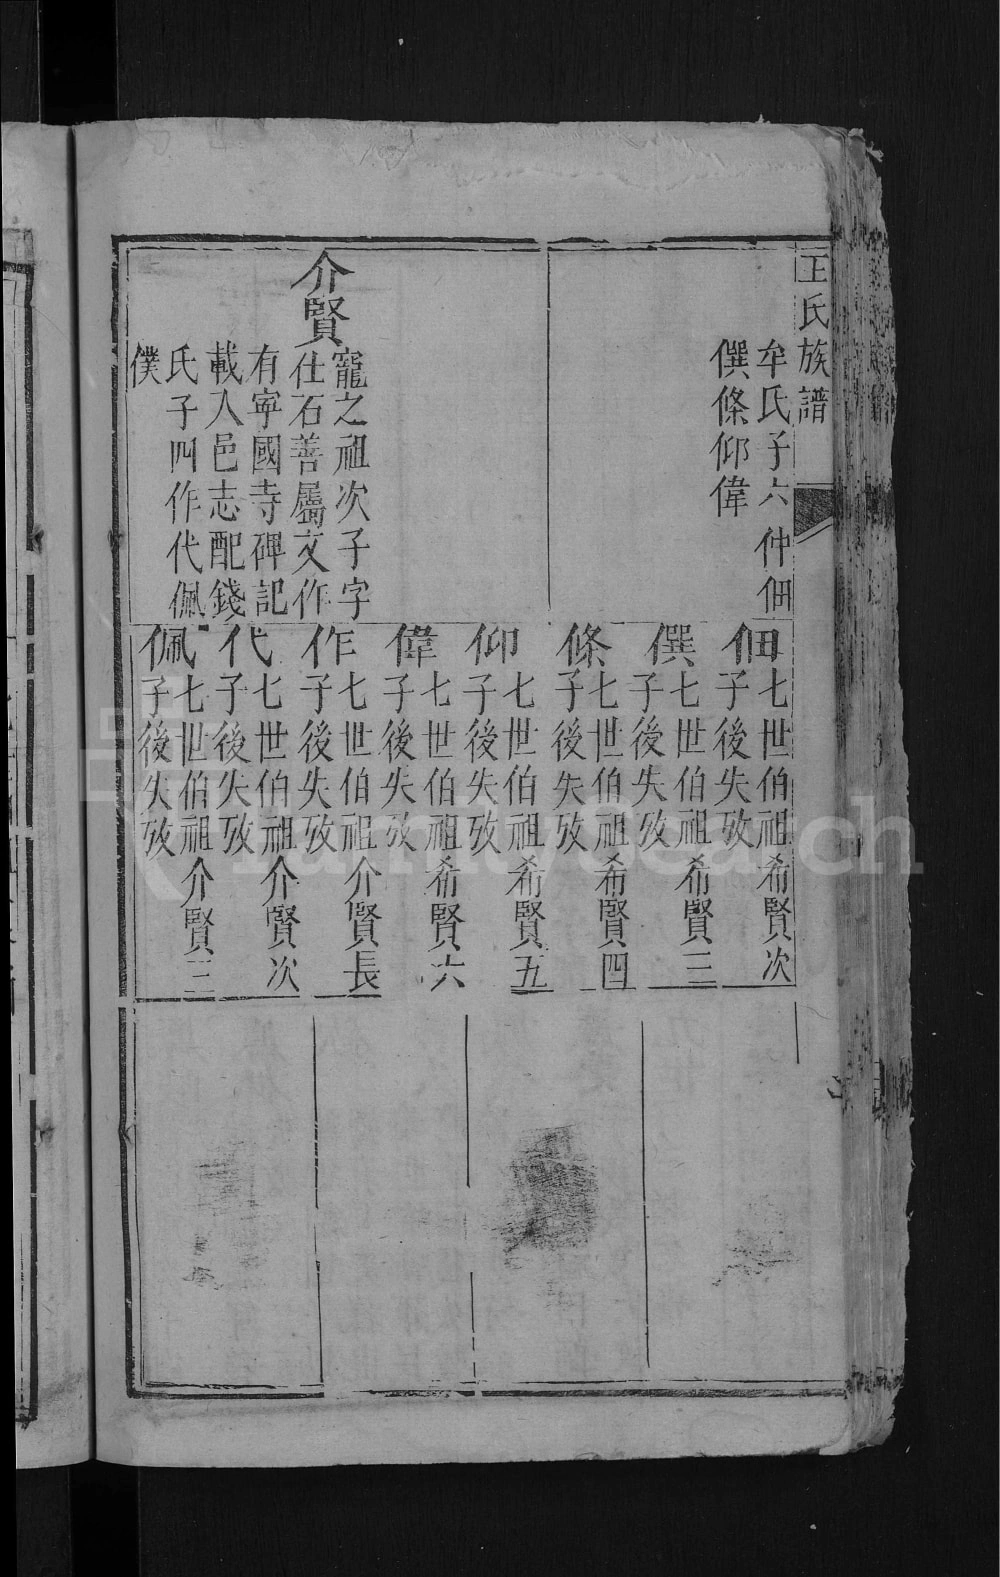 王氏族譜
牟氏子六仲佃
僎條仰偉
介賢
寵之祖次子字
仕石善屬文作
有寧國寺碑記
載入邑志配錢
氏子四作代佩
僕
佃
七世伯祖希賢次
子後失攷
僎
七世伯祖希賢三
子後失攷
條
七世伯祖希賢四
子後失攷
仰
七世伯祖希賢五
子後失攷
偉
七世伯祖希賢六
子後失攷
作
七世伯祖介賢長
子後失攷
代
七世伯祖介賢次
子後失攷
佩
七世伯祖介賢三
子後失攷
FamilySearch